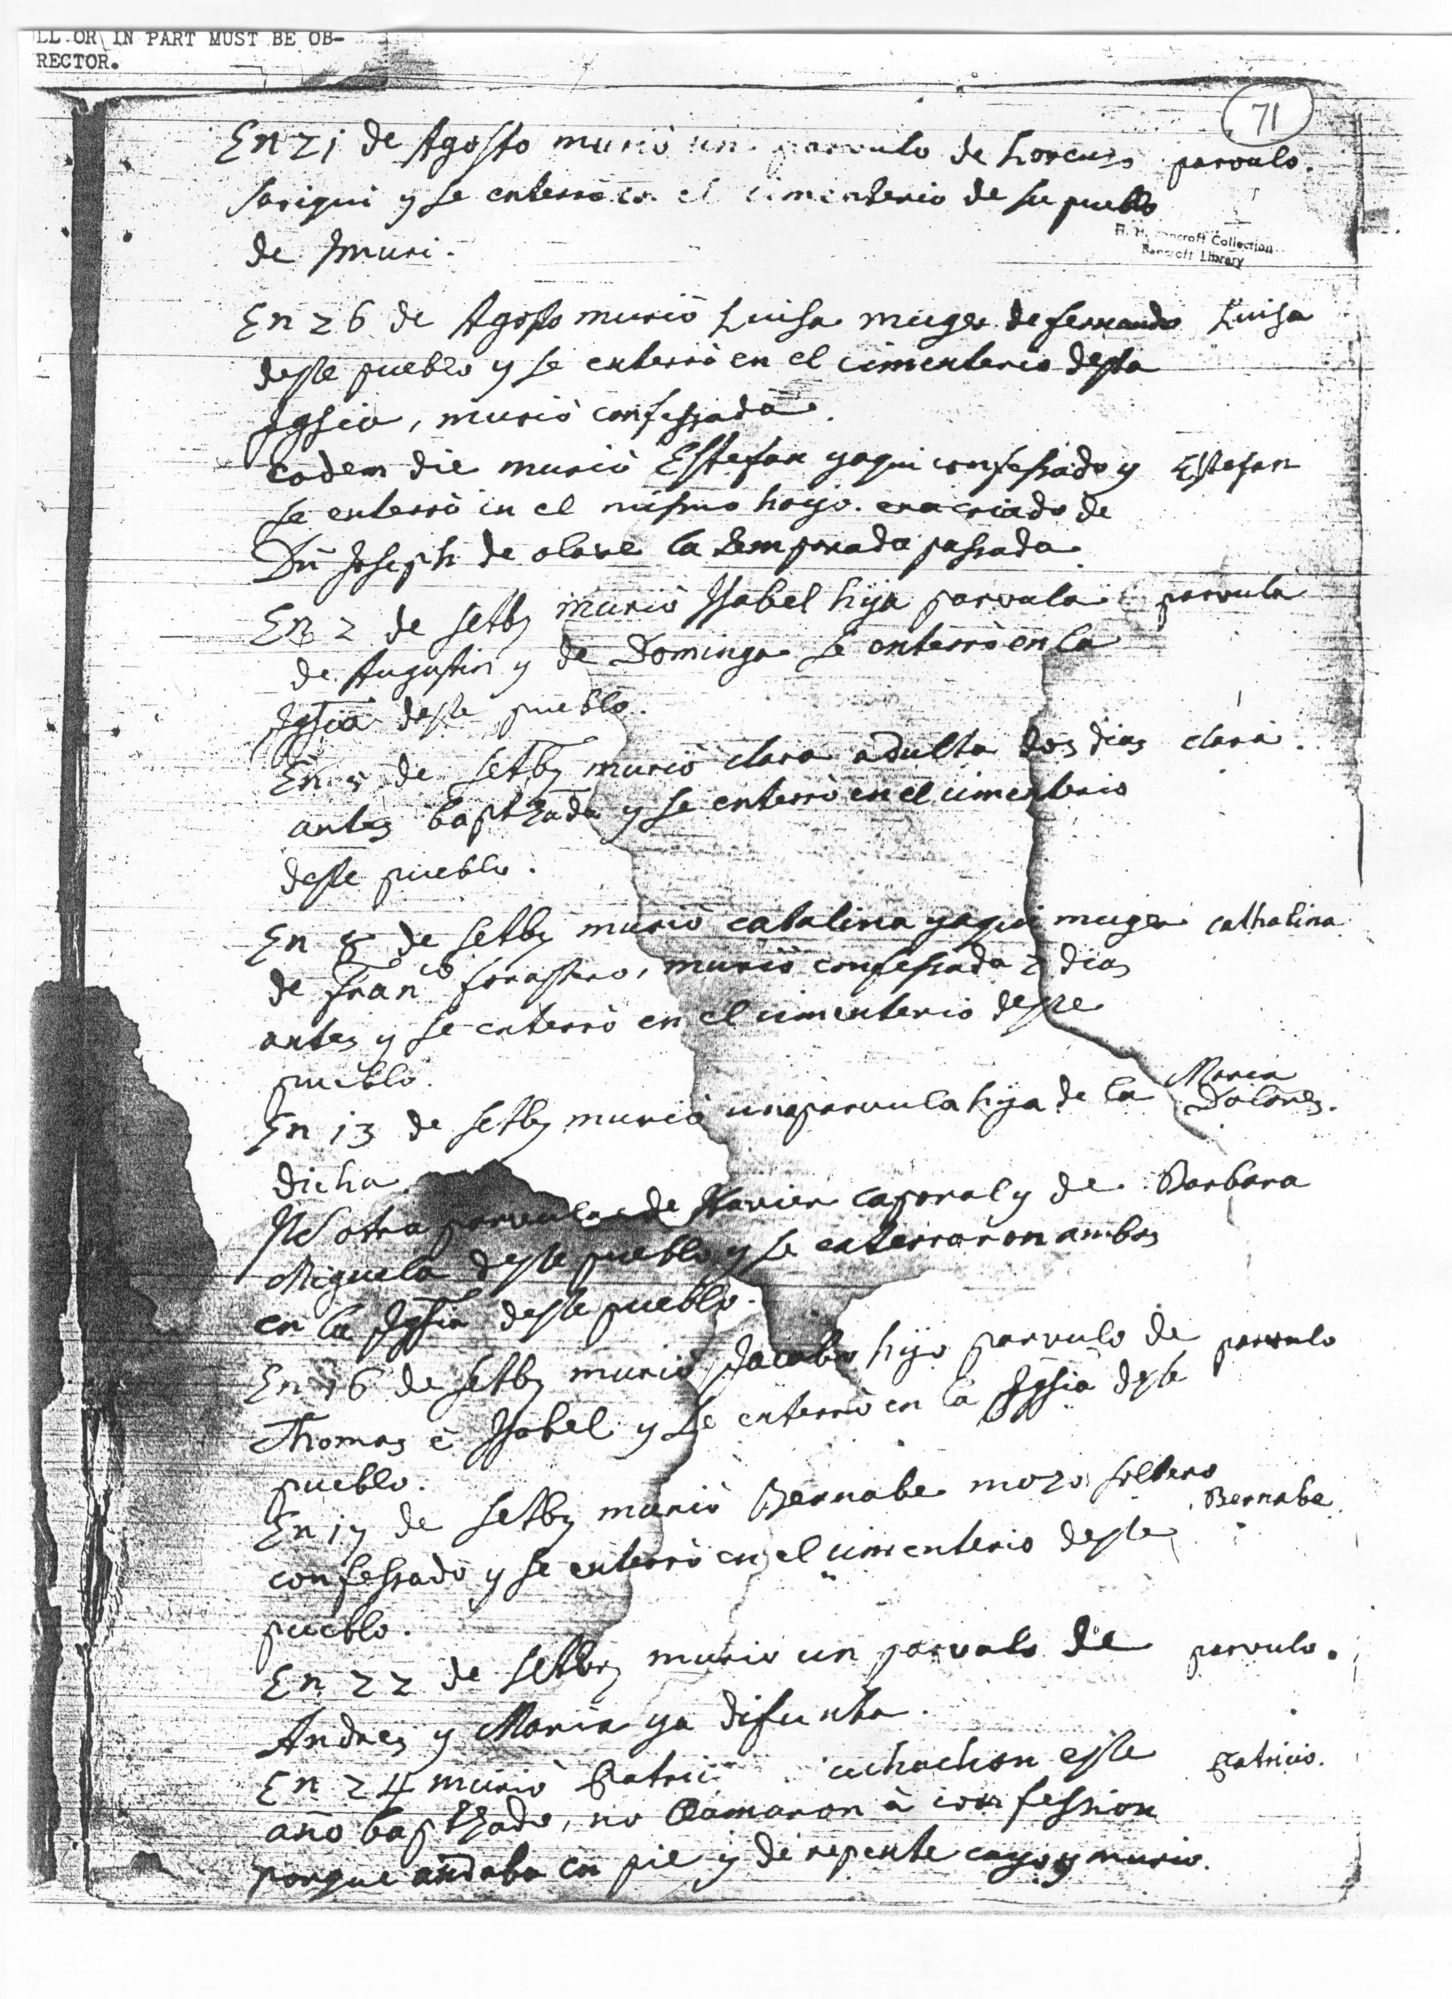 LL OR IN PART MUST BE OB-
RECTOR.
71
En 21 de Agosto muriò un parvulo de Lorenzo parvulo.
Sariqui y se enterrò en el cimenterio de su pueblo
de Jmuri.
H. H. Bancroft Collection
Bancroft Library
En 26 de Agosto muriò Luisa muger de fernando Luisa
deste pueblo y se enterrò en el cimenterio desta
Jglsia, muriò confessada.
eodem die muriò Estefan yaqui confessado y Estefan
se enterrò en el mismo hoyo. era criado de
Dn̄ Joseph de olave la temporada passada.
En 2 de Setbẽ muriò Jsabel hija parvula parvula
de Augustin y de Dominga se enterrò en la
Jglsia deste pueblo.
En 5 de Setbẽ muriò clara adulta dos dias clara.
antes baptizada y se enterrò en el cimenterio
deste pueblo.
En 8 de Setbẽ muriò catalina yaqui muger cathalina
de Franco forastero, muriò confessada 2 dias
antes y se enterrò en el cimenterio deste
pueblo.
En 13 de Setbẽ muriò una parvula hija de la Maria
Dolores.
dicha.
Jtẽ otra parvula de Xavier caporal y de Barbara
Miguela deste pueblo y se enterraron ambas
en la Jglsia deste pueblo.
En 16 de Setbẽ muriò Jacobo hijo parvulo de parvulo
Thomas è Jsabel y se enterrò en la Jglsia deste
pueblo.
En 17 de Setbẽ muriò Bernabe mozo soltero Bernabe
confessado y se enterrò en el cimenterio deste
pueblo.
En 22 de Setbrẽ murio un parvulo de parvulo.
Andres y Maria ya difunta.
En 24 muriò Patrici uchachon este Patricio.
año baptizado, no llamaron à confession
porque andaba en pie y de repente cayo y murio.